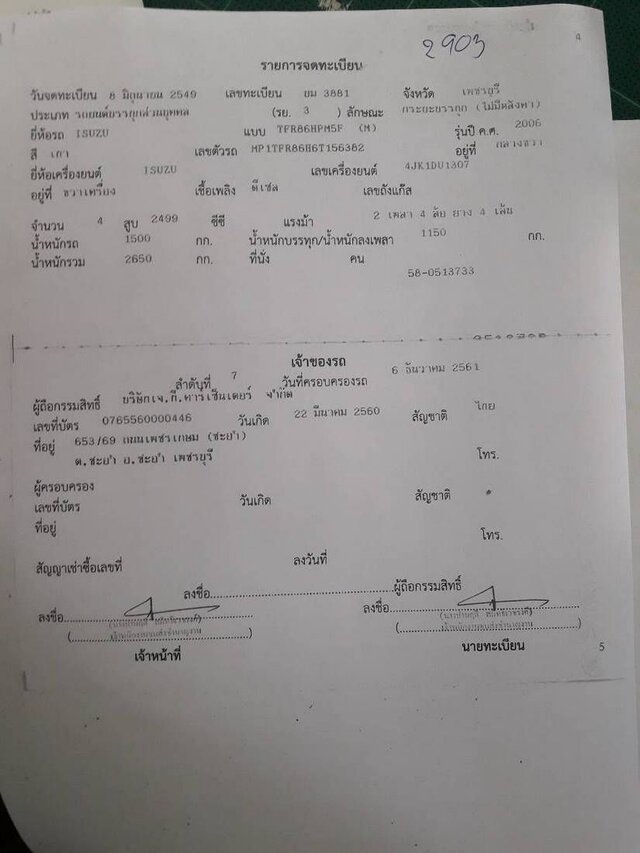 2903
4
รายการจดทะเบียน
วันจดทะเบียน 8 มิถุนายน 2549 เลขทะเบียน ยม 3881 จังหวัด เพชรบุรี
ประเภท รถยนต์บรรทุกส่วนบุคคล (รย. 3 ) ลักษณะ กระบะบรรทุก (ไม่มีหลังคา)
ยี่ห้อรถ ISUZU แบบ TFR86HPM5F (M) รุ่นปี ค.ศ. 2006
สี เทา เลขตัวรถ MP1TFR86H6T156382 อยู่ที่ กลางขวา
ยี่ห้อเครื่องยนต์ ISUZU เลขเครื่องยนต์ 4JK1DU1307
อยู่ที่ ขวาเครื่อง เชื้อเพลิง ดีเซล เลขถังแก๊ส
จำนวน 4 สูบ 2499 ซีซี แรงม้า 2 เพลา 4 ล้อ ยาง 4 เส้น
น้ำหนักรถ 1500 กก. น้ำหนักบรรทุก/น้ำหนักลงเพลา 1150 กก.
น้ำหนักรวม 2650 กก. ที่นั่ง คน
58-0513733
เจ้าของรถ
ลำดับที่ 7 วันที่ครอบครองรถ 6 ธันวาคม 2561
ผู้ถือกรรมสิทธิ์ บริษัทเจ.ที.คาร์เซ็นเตอร์ จำกัด
เลขที่บัตร 0765560000446 วันเกิด 22 มีนาคม 2560 สัญชาติ ไทย
ที่อยู่ 653/69 ถนนเพชรเกษม (ชะอำ)
ต.ชะอำ อ.ชะอำ เพชรบุรี โทร.
ผู้ครอบครอง
เลขที่บัตร วันเกิด สัญชาติ
ที่อยู่
โทร.
สัญญาเช่าซื้อเลขที่ ลงวันที่
ลงชื่อ ผู้ถือกรรมสิทธิ์
ลงชื่อ ลงชื่อ
เจ้าหน้าที่ นายทะเบียน
5